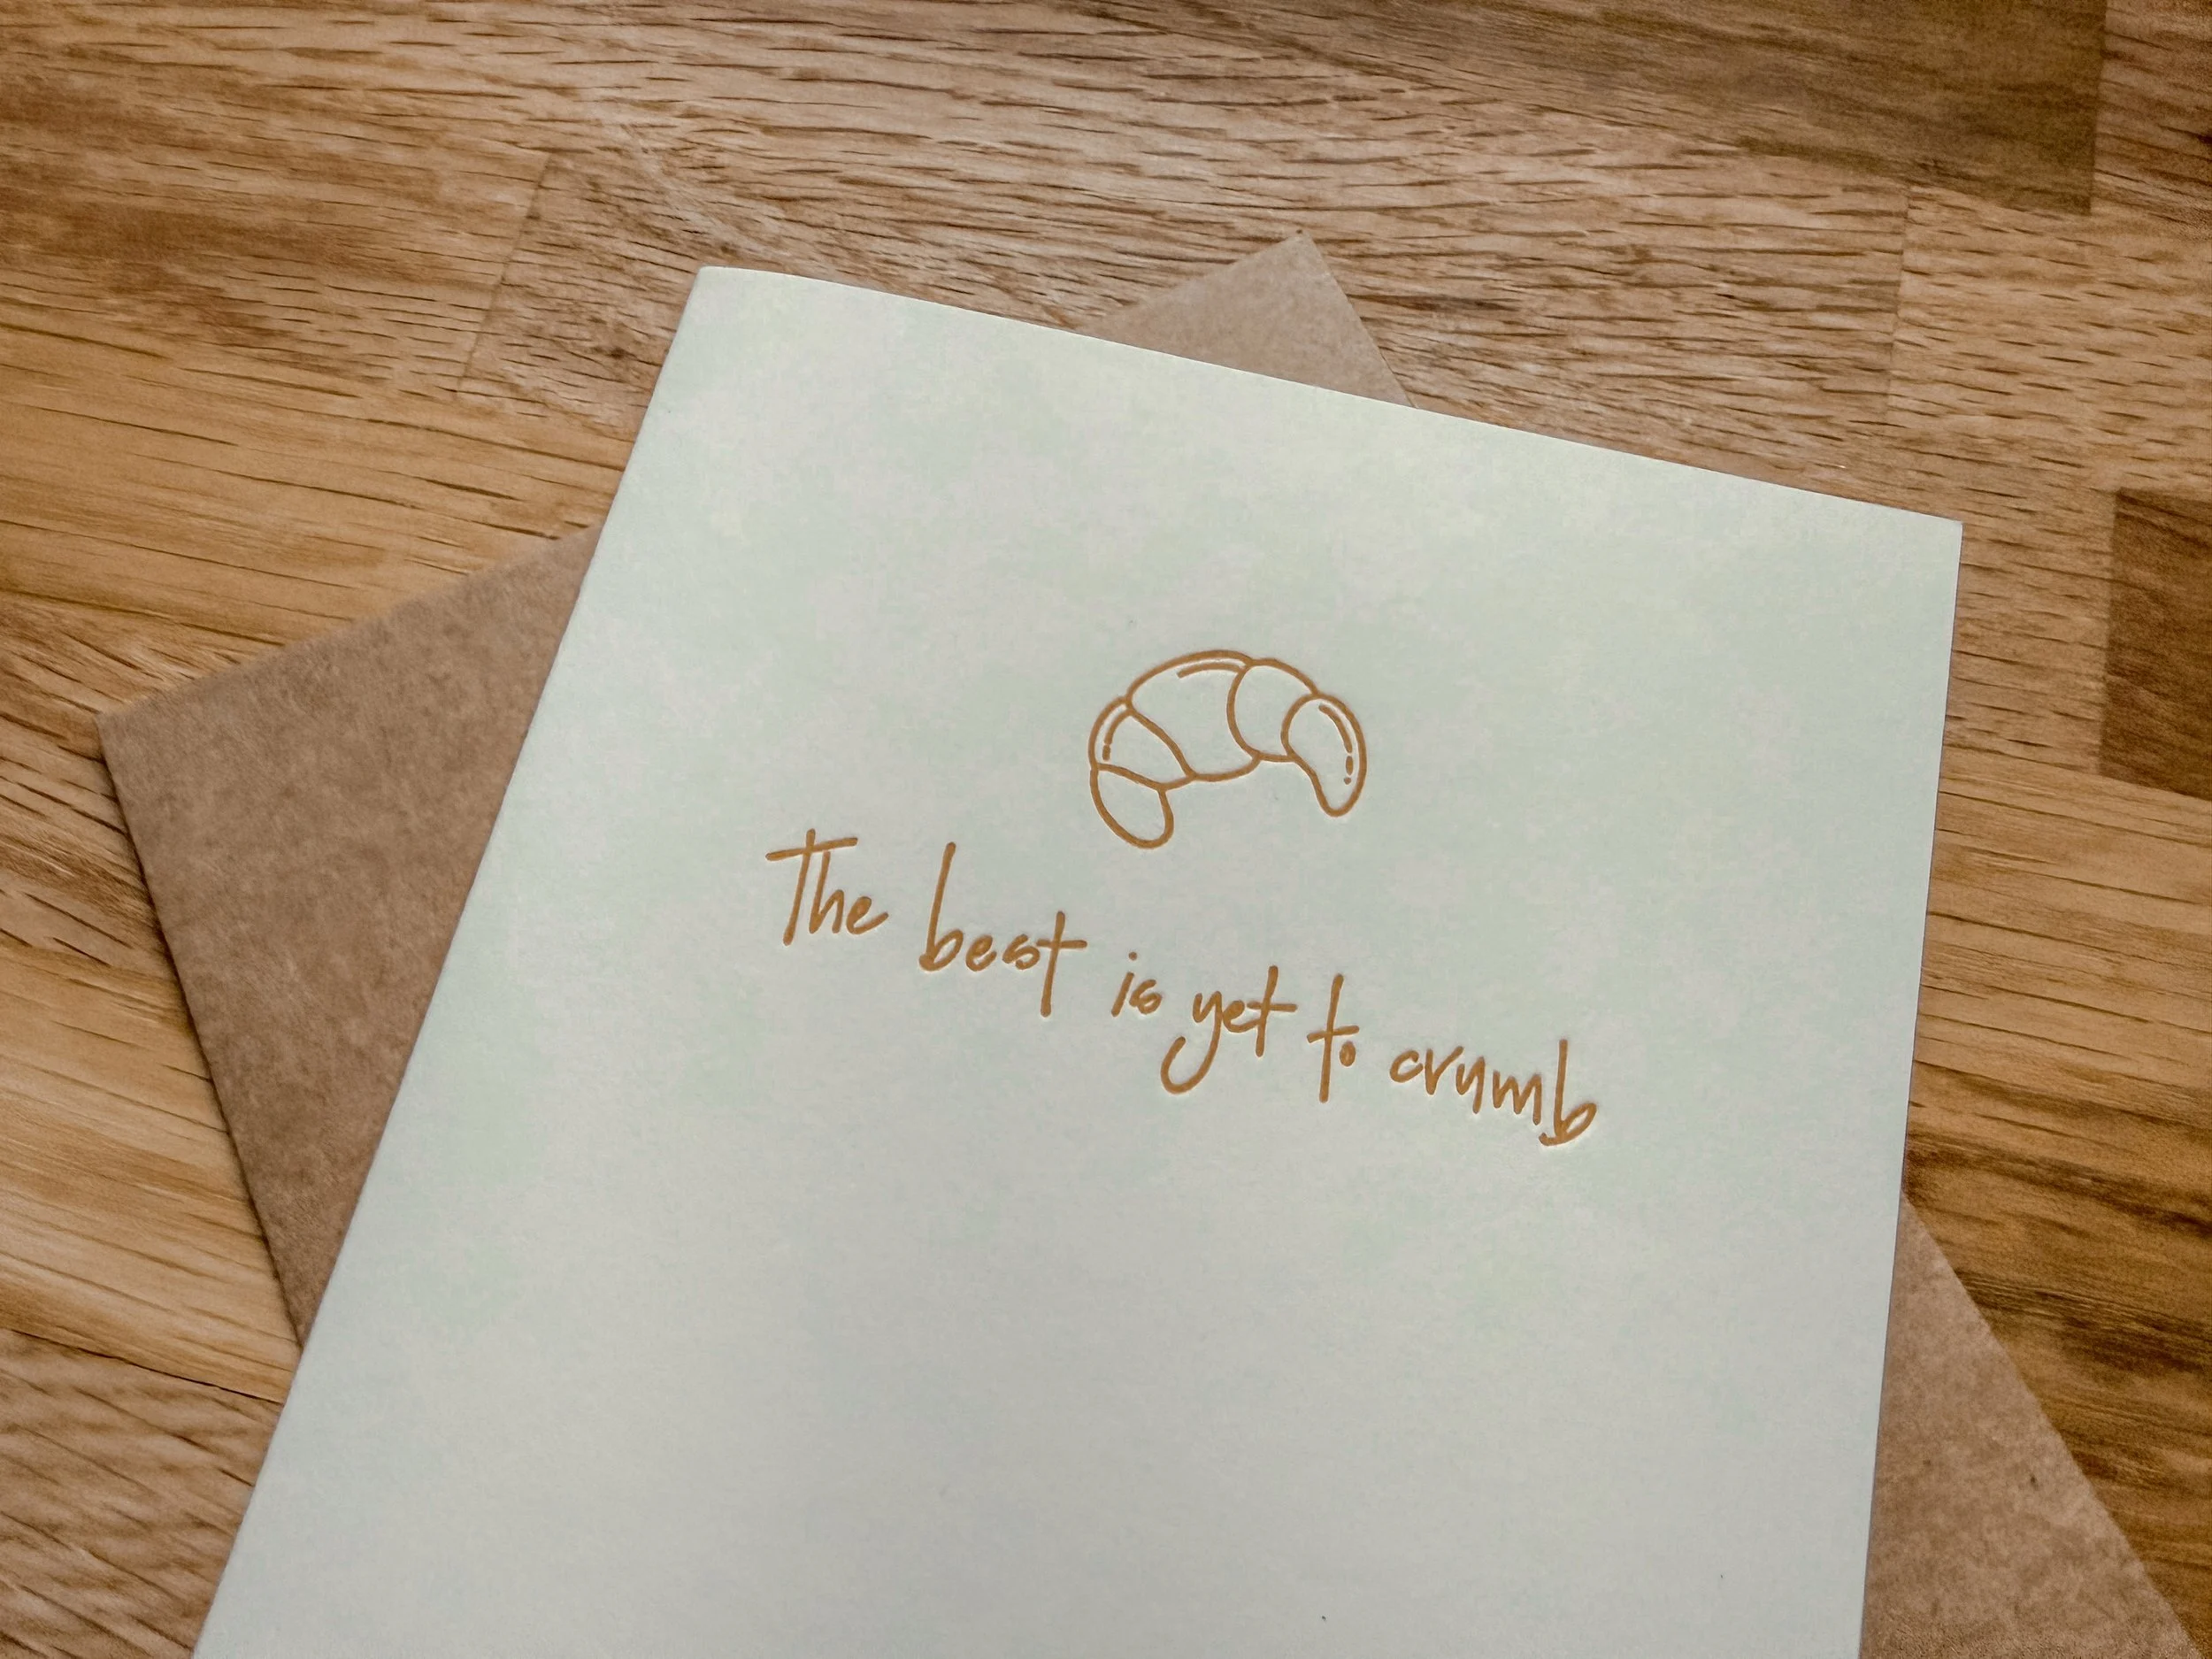 The best is yet to crumb